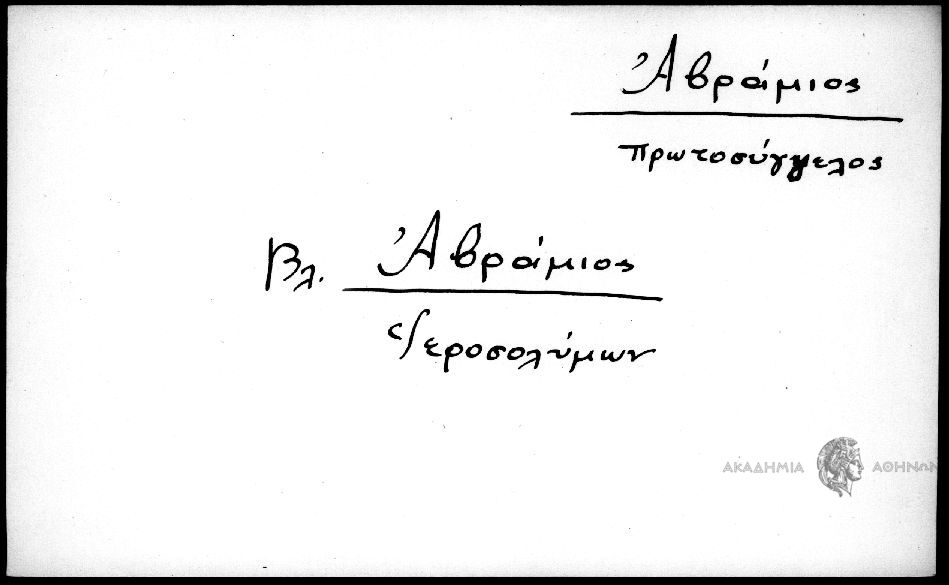 Ἀβράμιος
πρωτοσύγγελος
Βλ. Ἀβράμιος
Ἱεροσολύμων
ΑΚΑΔΗΜΙΑ ΑΘΗΝΩΝ